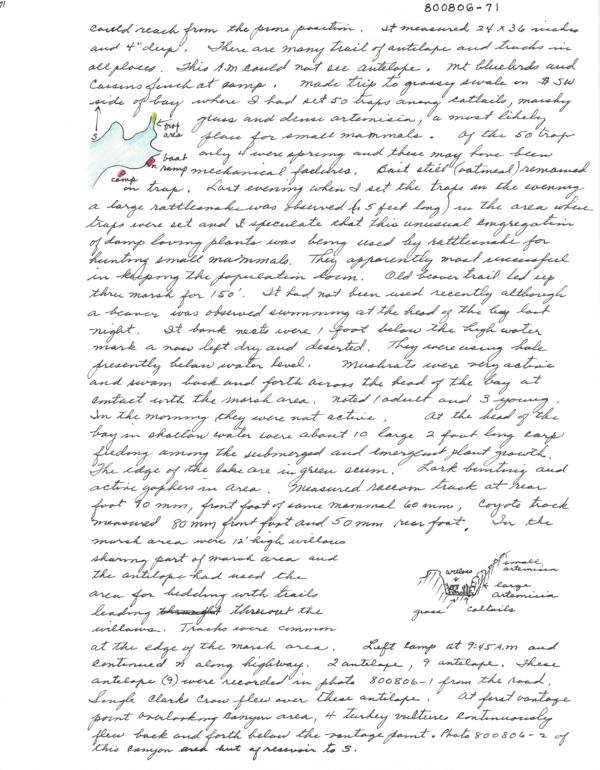 71
800806-71
could reach from the prone position. It measured 24 x 36 inches
and 4" deep. There are many trail of antelope and tracks in
all places. This A.M could not see antelope. Mt bluebirds and
Cassins finch at camp. Made trip to grassy swale on SW
side of bay where I had set 50 traps among cattails, marshy
grass and dense artemisia, a most likely
place for small mammals. Of the 50 trap
only 4 were sprung and these may have been
mechanical failures. Bait still (oatmeal) remained
on trap. Last evening when I set the traps in the evening
S
trap
area
boat
ramp
camp
a large rattlesnake was observed (1.5 feet long) in the area where
traps were set and I speculate that this unusual congregation
of damp loving plants was being used by rattlesnake for
hunting small mammals. They apparently most successful
in keeping the population down. Old beaver trail led up
thru marsh for 150'. It had not been used recently although
a beaver was observed swimming at the head of the bay last
night. It bank nests were 1 foot below the high water
mark a now left dry and deserted. They were using hole
presently below water level. Muskrats were very active
and swam back and forth across the head of the bay at
contact with the marsh area. noted 1 adult and 3 young.
In the morning they were not active. At the head of the
bay in shallow water were about 10 large 2 foot long carp
feeding among the submerged and emergent plant growth.
The edge of the lake are in green scum. Lark bunting and
active gophers in area. Measured raccoon track at rear
foot 90 mm, front foot of same mammal 60 mm, Coyote track
measured 80 mm front foot and 50 mm rear foot. In the
marsh area were 12' high willows
sharing part of marsh area and
the antelope had used the
area for bedding with trails
leading throught thruout the
willows. Tracks were common
willow
small
artemisia
large
artemisia
grass
cattails
at the edge of the marsh area. Left camp at 9:45 A.m and
continued N along highway. 2 antelope, 9 antelope. These
antelope (9) were recorded in photo 800806-1 from the road.
Single Clarks Crow flew over these antelope. At first vantage
point overlooking canyon area, 4 turkey vultures continuously
flew back and forth below the vantage point. Photo 800806-2 of
this canyon area but of resevoir to S.